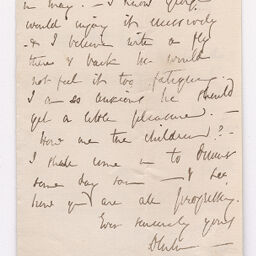 in May. — I know George
would enjoy it immensely
& I believe with a fly
there & back he would
not feel it too fatiguing
I am so anxious he should
get a little pleasure. —
How are the children? —
I shall come in to
some day soon — & see
how you are all progressing.
Ever sincerely yours